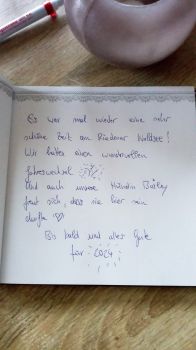 Es war mal wieder eine sehr
schöne Zeit am Riedener Waldsee!
Wir hatten einen wundervollen
Jahreswechsel
Und auch unsere Hündin Bailey
freut sich, dass sie hier sein
durfte ♡
Bis bald und alles Gute
für 2024